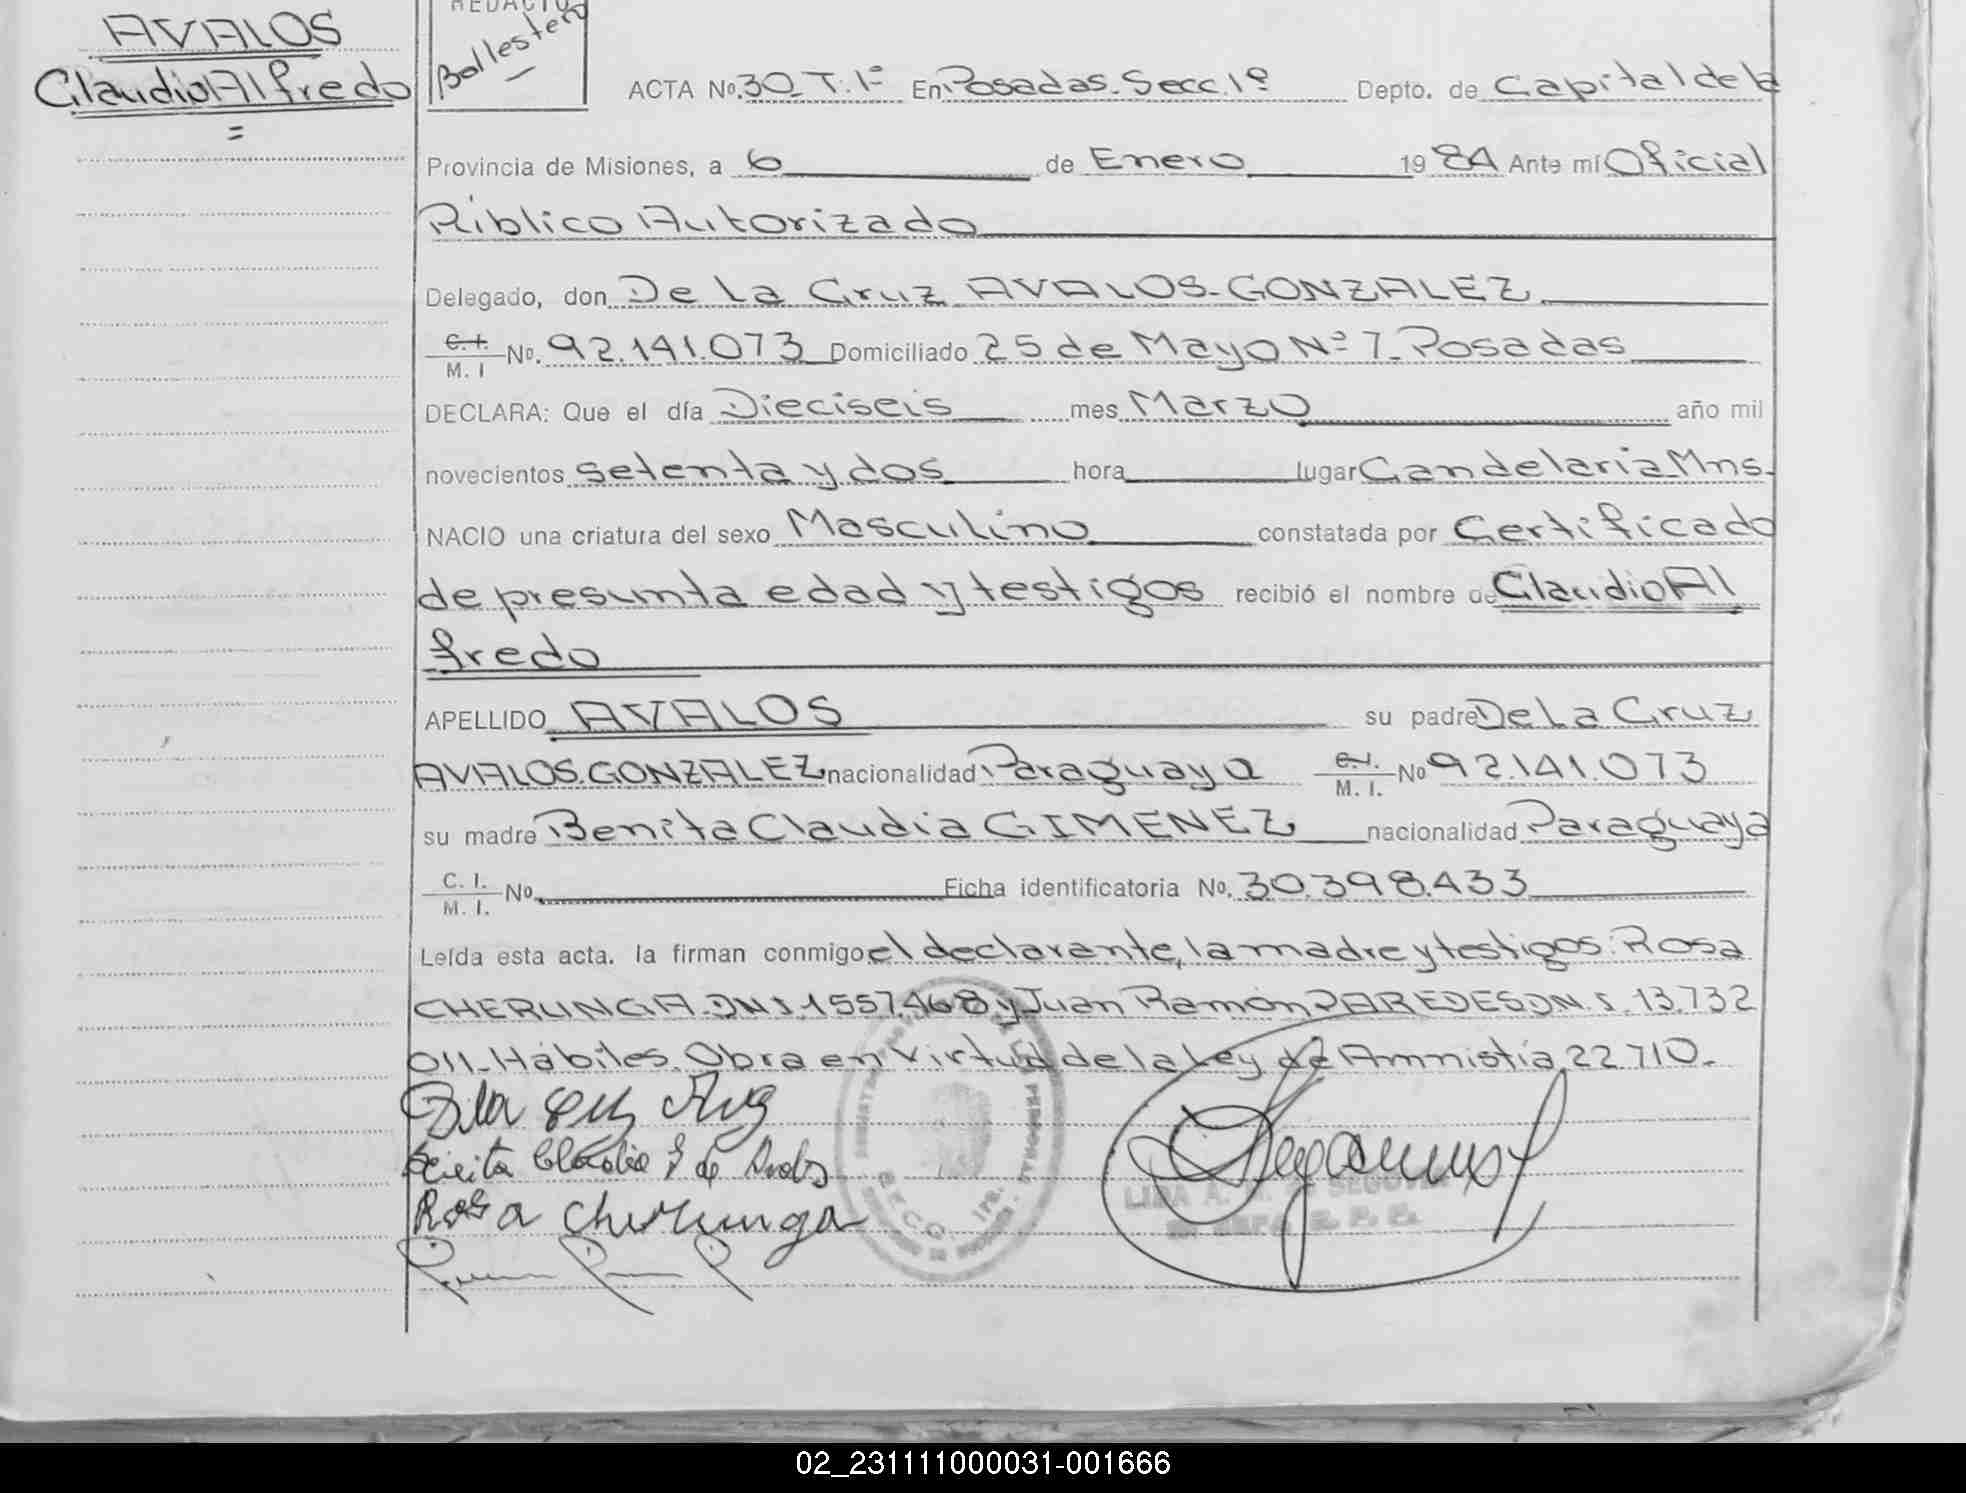 AVALOS
Claudio Alfredo
=
REDACTO
Ballestero
ACTA Nº. 30 T. 1º En Posadas. Secc. 1º Depto. de Capital de la
Provincia de Misiones, a 6 de Enero 1984 Ante mí Oficial
Público Autorizado
Delegado, don De La Cruz AVALOS-GONZALEZ
C. I. / M. I Nº. 92.141.073 Domiciliado 25 de Mayo Nº 7. Posadas
DECLARA: Que el día Dieciseis mes Marzo año mil
novecientos setenta y dos hora lugar Candelaria Mns.
NACIO una criatura del sexo Masculino constatada por Certificado
de presunta edad y testigos recibió el nombre de Claudio Al
fredo
APELLIDO AVALOS su padre De La Cruz
AVALOS. GONZALEZ nacionalidad Paraguaya C. I. / M. I. Nº 92.141.073
su madre Benita Claudia GIMENEZ nacionalidad Paraguaya
C. I. / M. I. Nº. Ficha identificatoria Nº. 30.398.433
Leída esta acta. la firman conmigo el declarante, la madre y testigos: Rosa
CHERUNGA. DNI. 1557.468 y Juan Ramón PAREDES DN.I. 13.732
011. Hábiles. Obra en Virtud de la Ley de Amnistía 22.710.
Rosa Cherunga
LIDA A. M. DE SEGOVIA
02_231111000031-001666